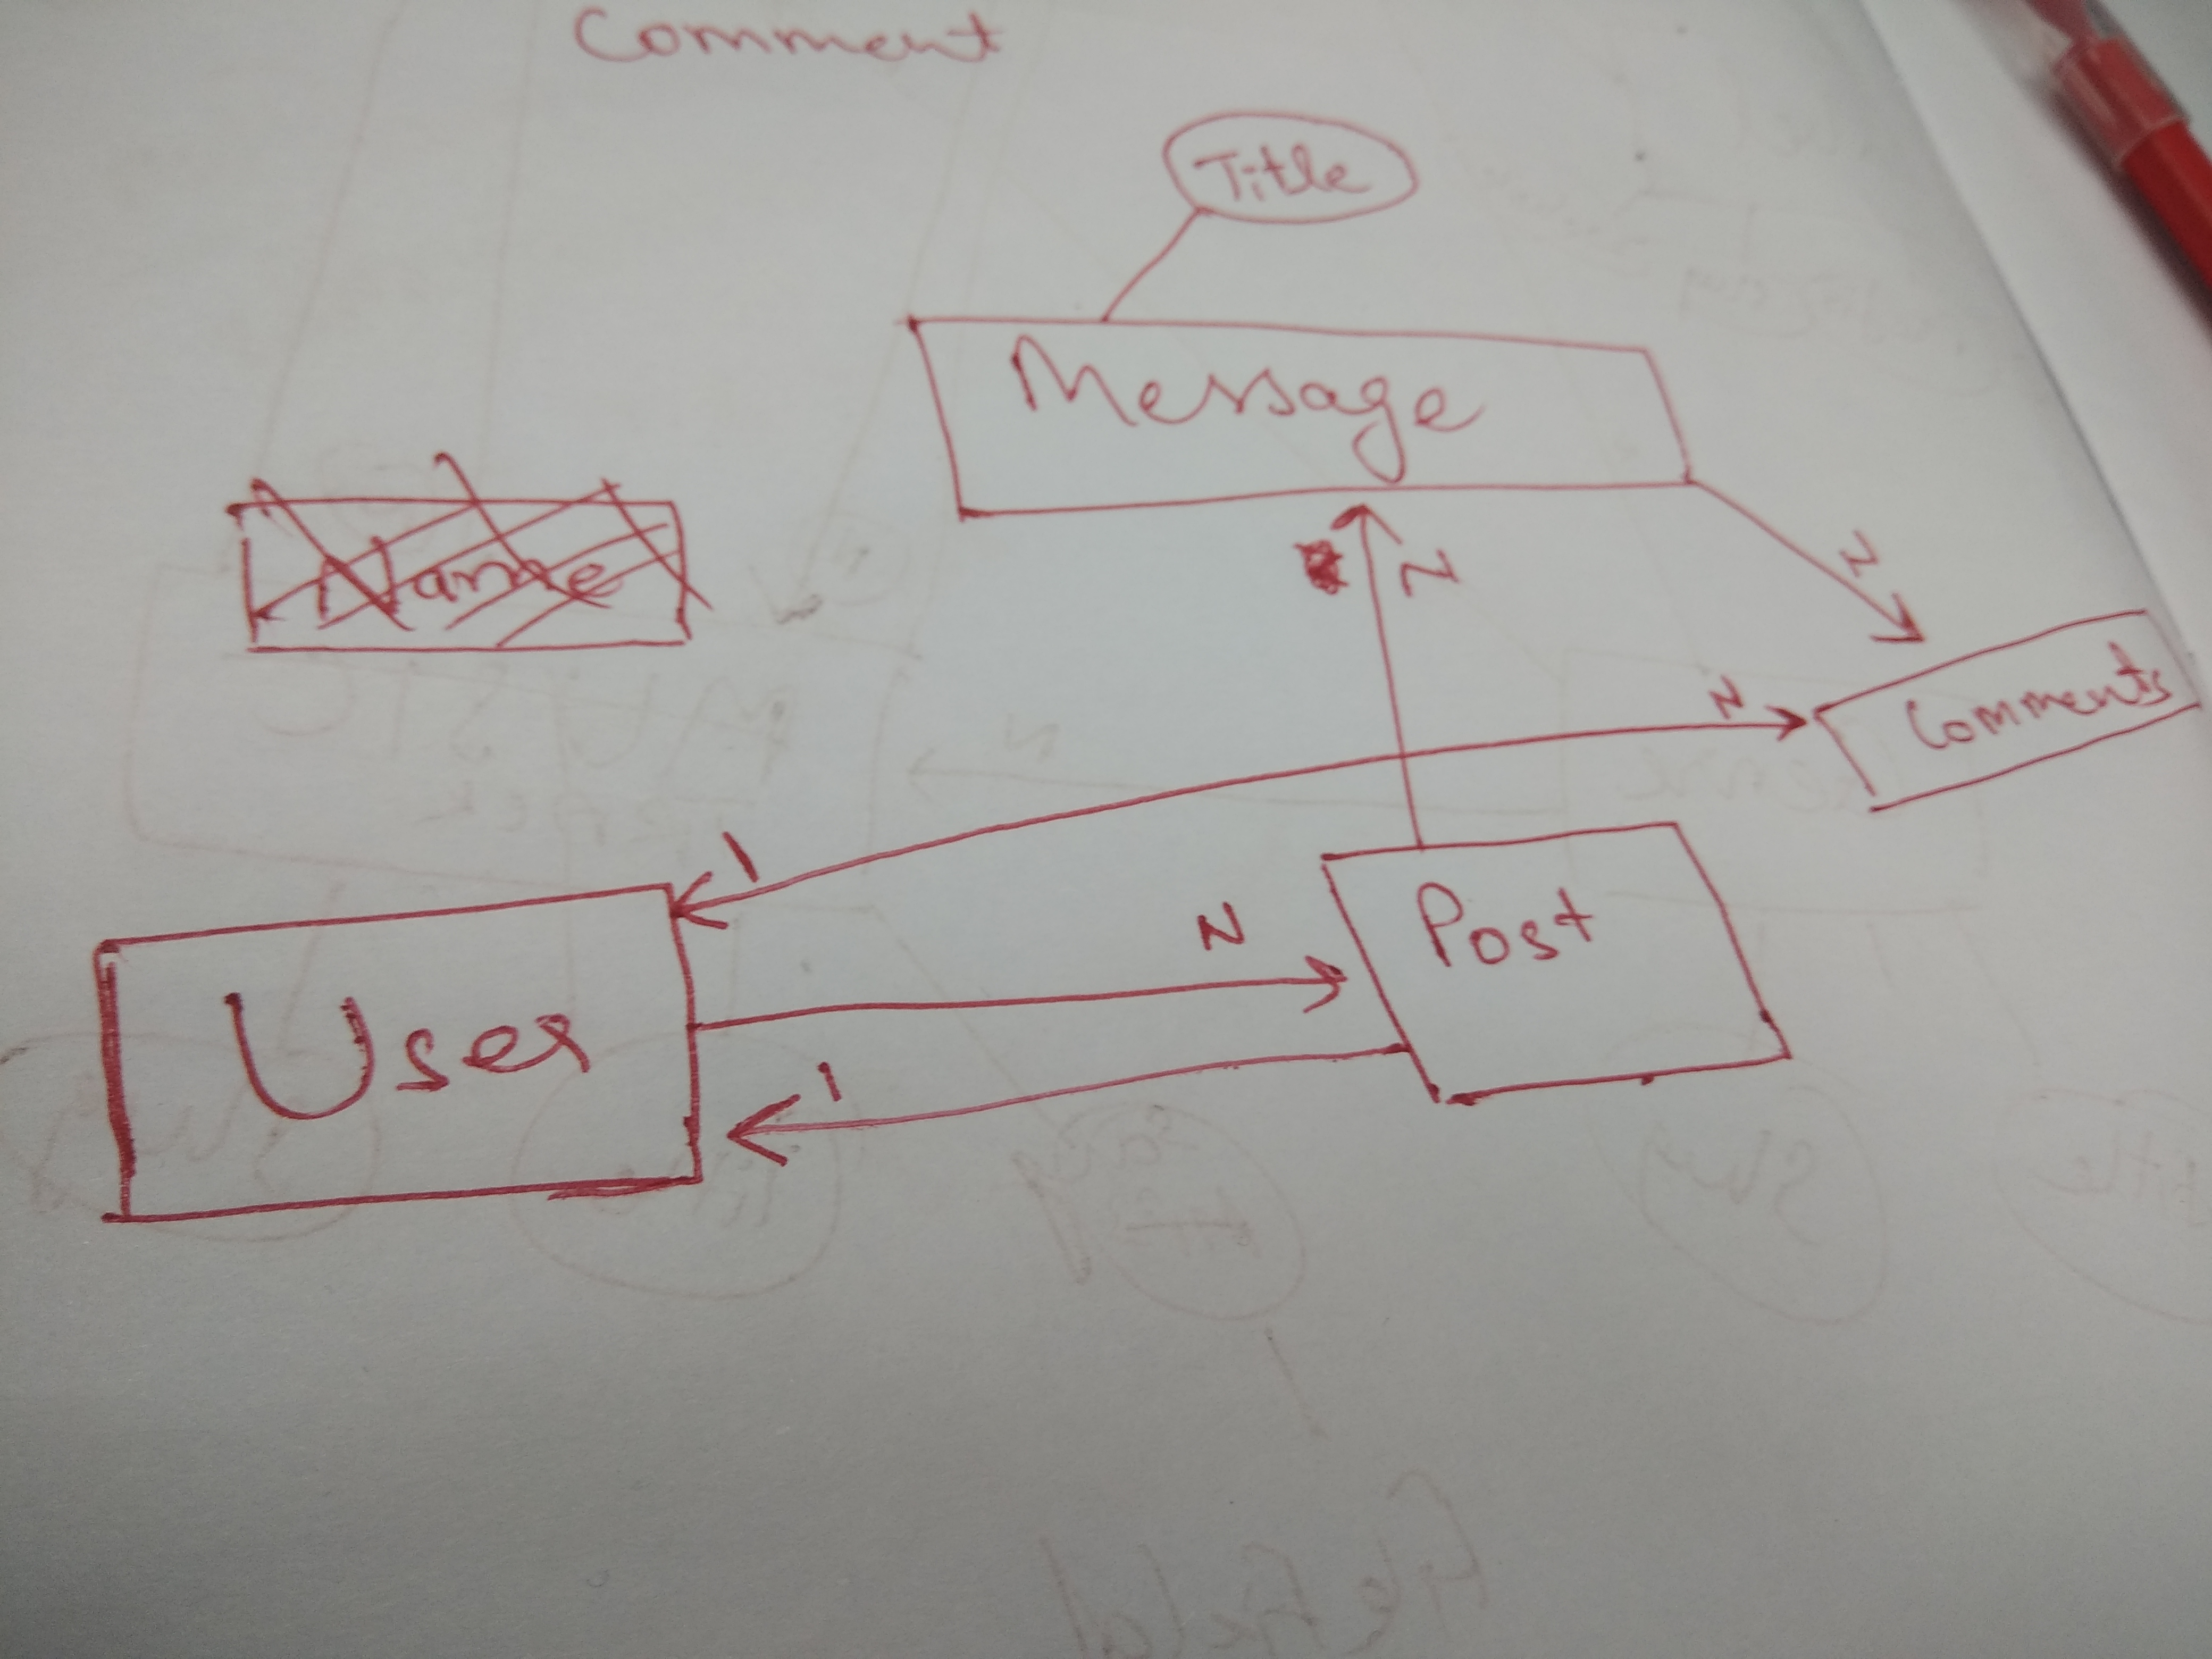 Comment
Title
Message
Name
N
N
N
Comments
1
N
Post
User
1